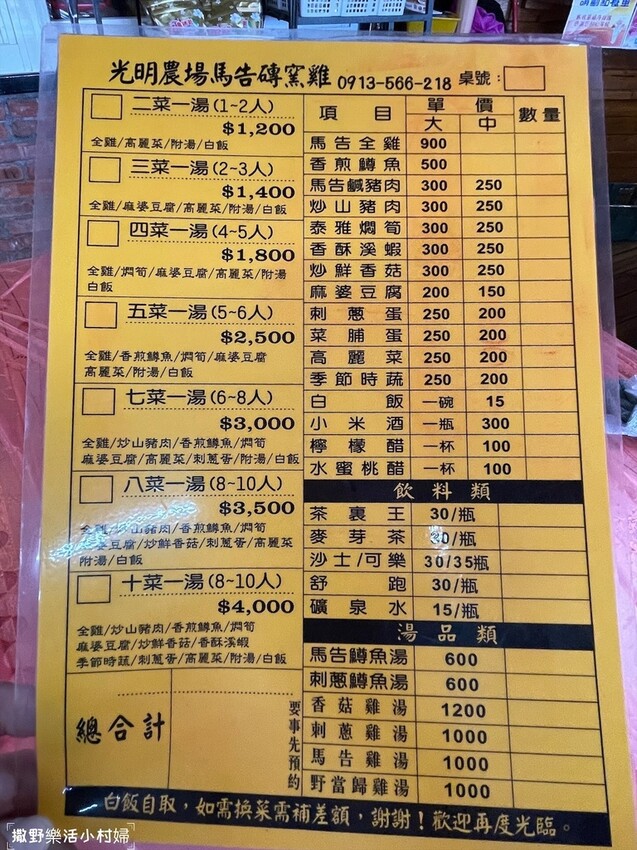 光明農場馬告磚窯雞 0913-566-218 桌號:
二菜一湯(1~2人)
$1,200
全雞/高麗菜/附湯/白飯
三菜一湯(2~3人)
$1,400
全雞/麻婆豆腐/高麗菜/附湯/白飯
四菜一湯(4~5人)
$1,800
全雞/燜筍/麻婆豆腐/高麗菜/附湯
白飯
五菜一湯(5~6人)
$2,500
全雞/香煎鱒魚/燜筍/麻婆豆腐
高麗菜/附湯/白飯
七菜一湯(6~8人)
$3,000
全雞/炒山豬肉/香煎鱒魚/燜筍
麻婆豆腐/高麗菜/刺蔥蛋/附湯/白飯
八菜一湯(8~10人)
$3,500
全雞/炒山豬肉/香煎鱒魚/燜筍
麻婆豆腐/炒鮮香菇/刺蔥蛋/高麗菜
附湯/白飯
十菜一湯(8~10人)
$4,000
全雞/炒山豬肉/香煎鱒魚/燜筍
麻婆豆腐/炒鮮香菇/香酥溪蝦
季節時蔬/刺蔥蛋/高麗菜/附湯/白飯
總合計
項目 單價 數量
大 中
馬告全雞 900
香煎鱒魚 500
馬告鹹豬肉 300 250
炒山豬肉 300 250
泰雅燜筍 300 250
香酥溪蝦 300 250
炒鮮香菇 300 250
麻婆豆腐 200 150
刺蔥蛋 250 200
菜脯蛋 250 200
高麗菜 250 200
季節時蔬 250 200
白飯 一碗 15
小米酒 一瓶 300
檸檬醋 一杯 100
水蜜桃醋 一杯 100
飲料類
茶裏王 30/瓶
麥芽茶 30/瓶
沙士/可樂 30/35瓶
舒跑 30/瓶
礦泉水 15/瓶
湯品類
馬告鱒魚湯 600
刺蔥鱒魚湯 600
要事先預約
香菇雞湯 1200
刺蔥雞湯 1000
馬告雞湯 1000
野當歸雞湯 1000
白飯自取，如需換菜需補差額，謝謝！歡迎再度光臨。
撒野樂活小村婦